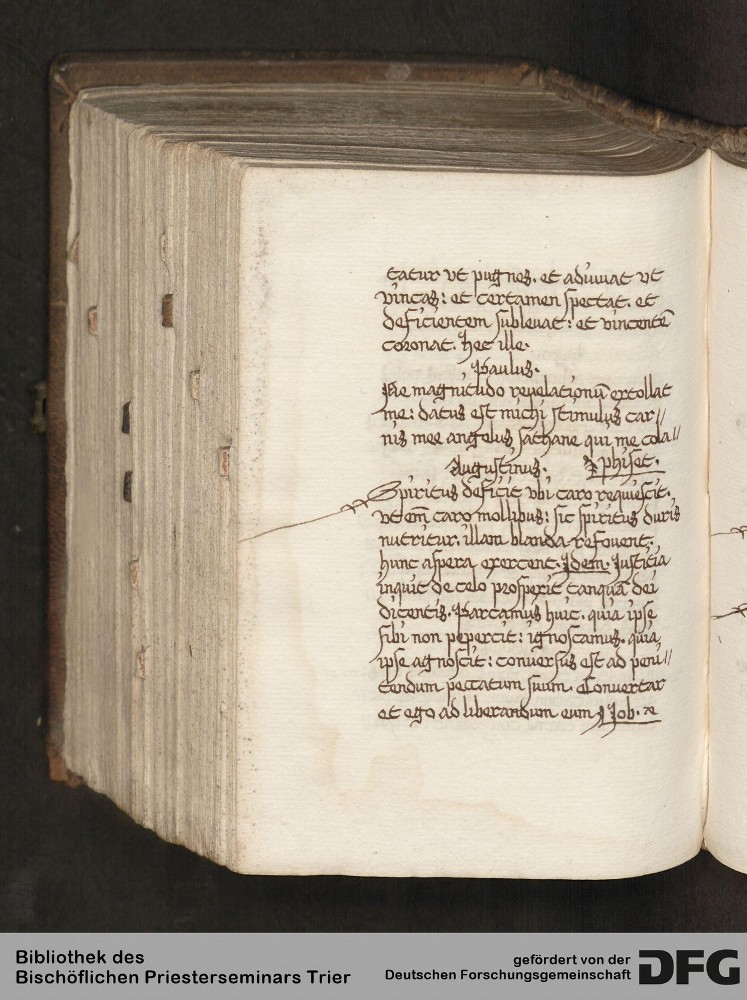 tatur vt pugnes. et adiuuat vt
vincas: et certamen spectat. et
deficientem subleuat: et vincentē
coronat. hec ille.
Paulus.
Ne magnitudo reuelationū extollat
me: datus est michi stimulus car//
nis mee angelus sathane qui me cola//
Augustinus. phiset.
Spiritus deficit vbi caro requiescit.
vt em̄ caro mollibus: sic spiritus duris
nutritur. illam blanda refouent.
hunc aspera exercent. Idem. Iusticia
inquit de celo prospexit tanquā dei
dicentis. Parcamus huic. quia ipse
sibi non pepercit: ignoscamus. quia
ipse agnoscit: conuersus est ad peni//
tendum peccatum suum. Conuertar
et ego ad liberandum eum Iob.
Bibliothek des
Bischöflichen Priesterseminars Trier
gefördert von der
Deutschen Forschungsgemeinschaft DFG